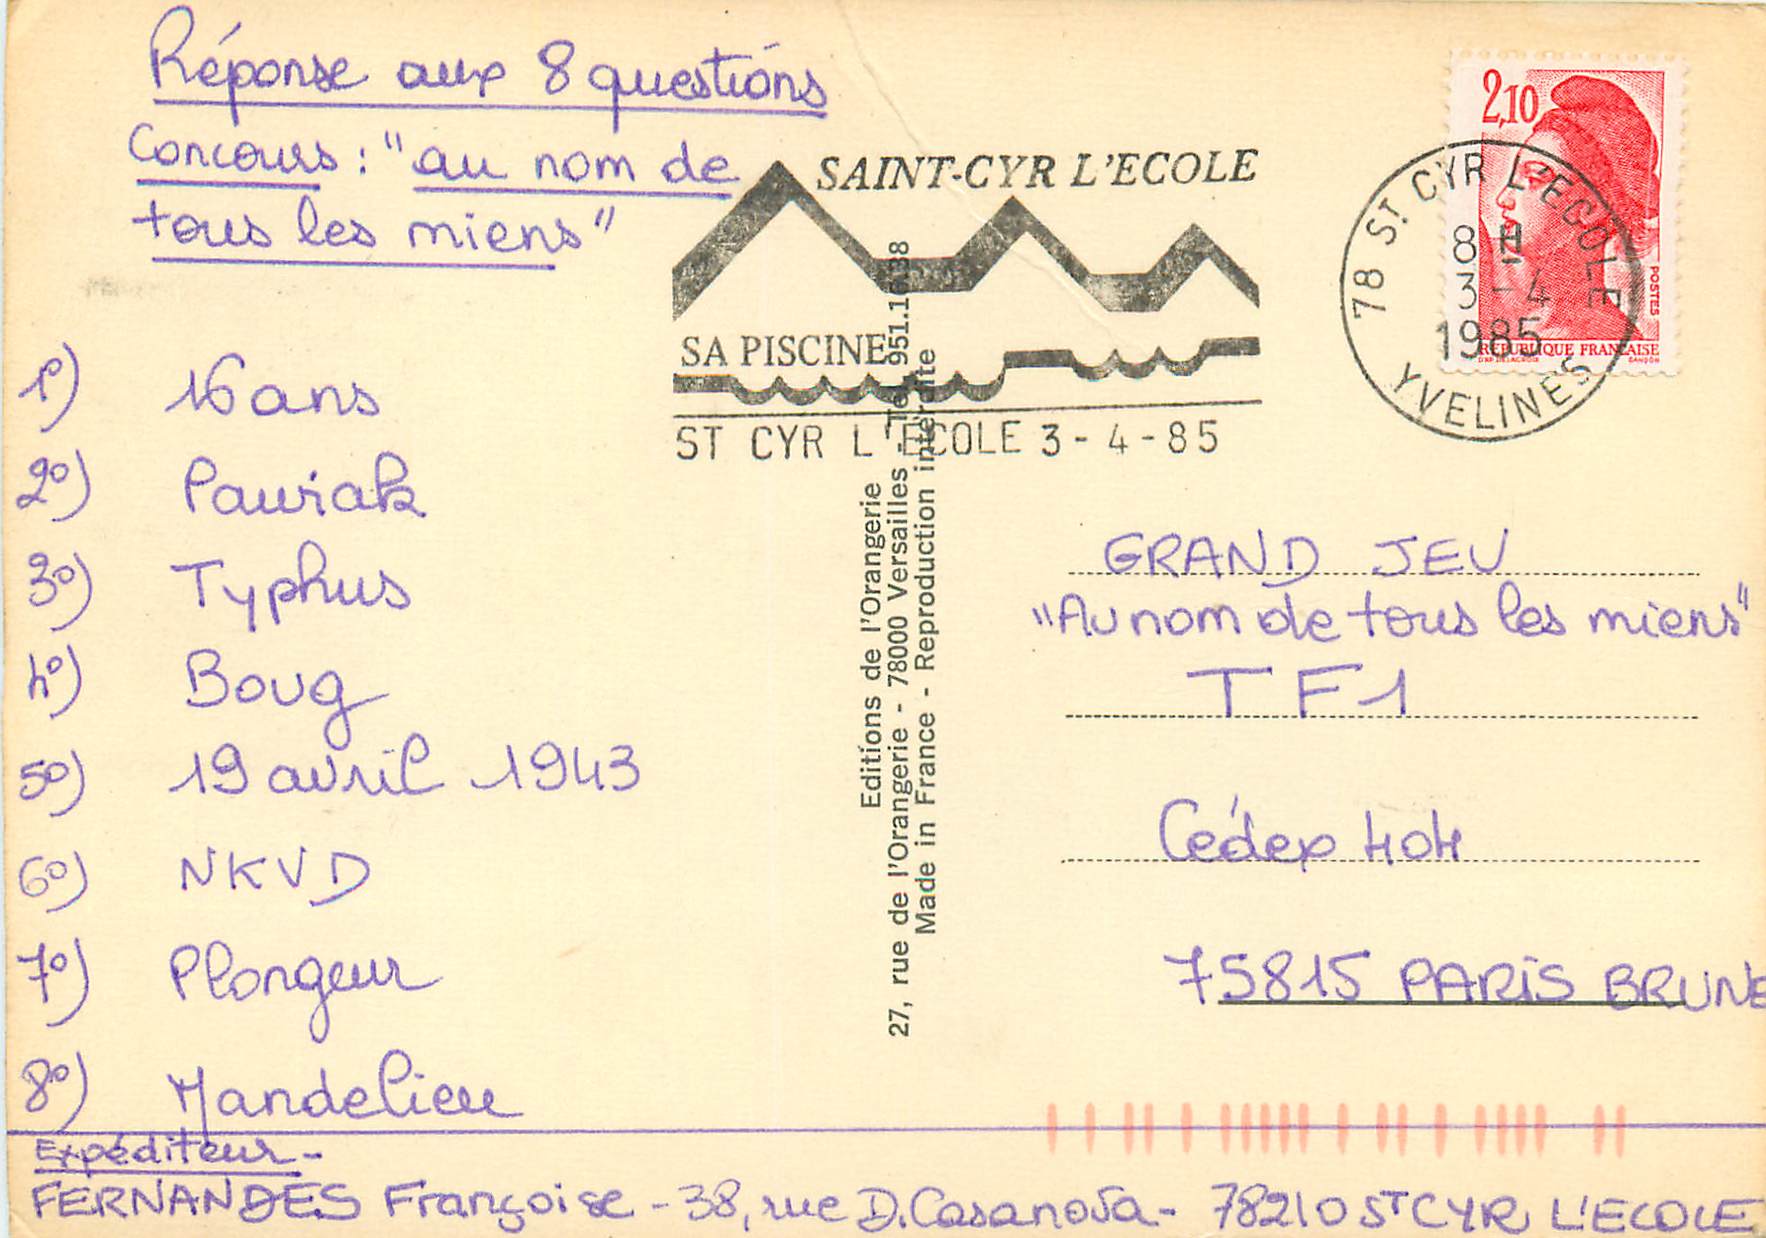 Réponse aux 8 questions
Concours : "au nom de
tous les miens"
1º) 16 ans
2º) Pawiak
3º) Typhus
4º) Boug
5º) 19 avril 1943
6º) NKVD
7º) Plongeur
8º) Mandelieu
Expéditeur -
FERNANDES Françoise - 38, rue D. Casanova - 78210 ST CYR L'ECOLE
SAINT-CYR L'ECOLE
SA PISCINE
ST CYR L'ECOLE 3-4-85
Editions de l'Orangerie
27, rue de l'Orangerie - 78000 Versailles - Tel. 951.
Made in France - Reproduction interdite
2,10
POSTES
REPUBLIQUE FRANÇAISE
D'AP. DELACROIX
GANDON
78 ST CYR L'ECOLE
8 H
3-4
1985
YVELINES
GRAND JEU
"Au nom de tous les miens"
TF1
Cédex 404
75815 PARIS BRUNE